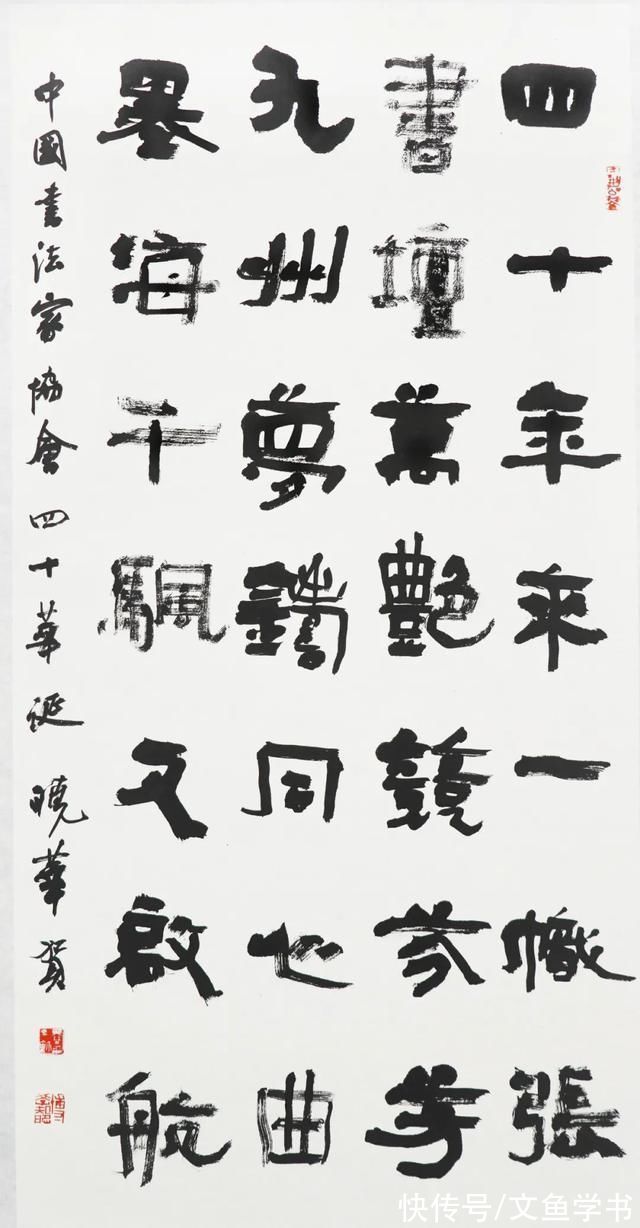 四十年來一幟張
書壇萬艷競芬芳
九州夢鑄同心曲
墨海千颿又啟航
中國書法家協會四十華誕 曉華賀
快传号/文鱼学书